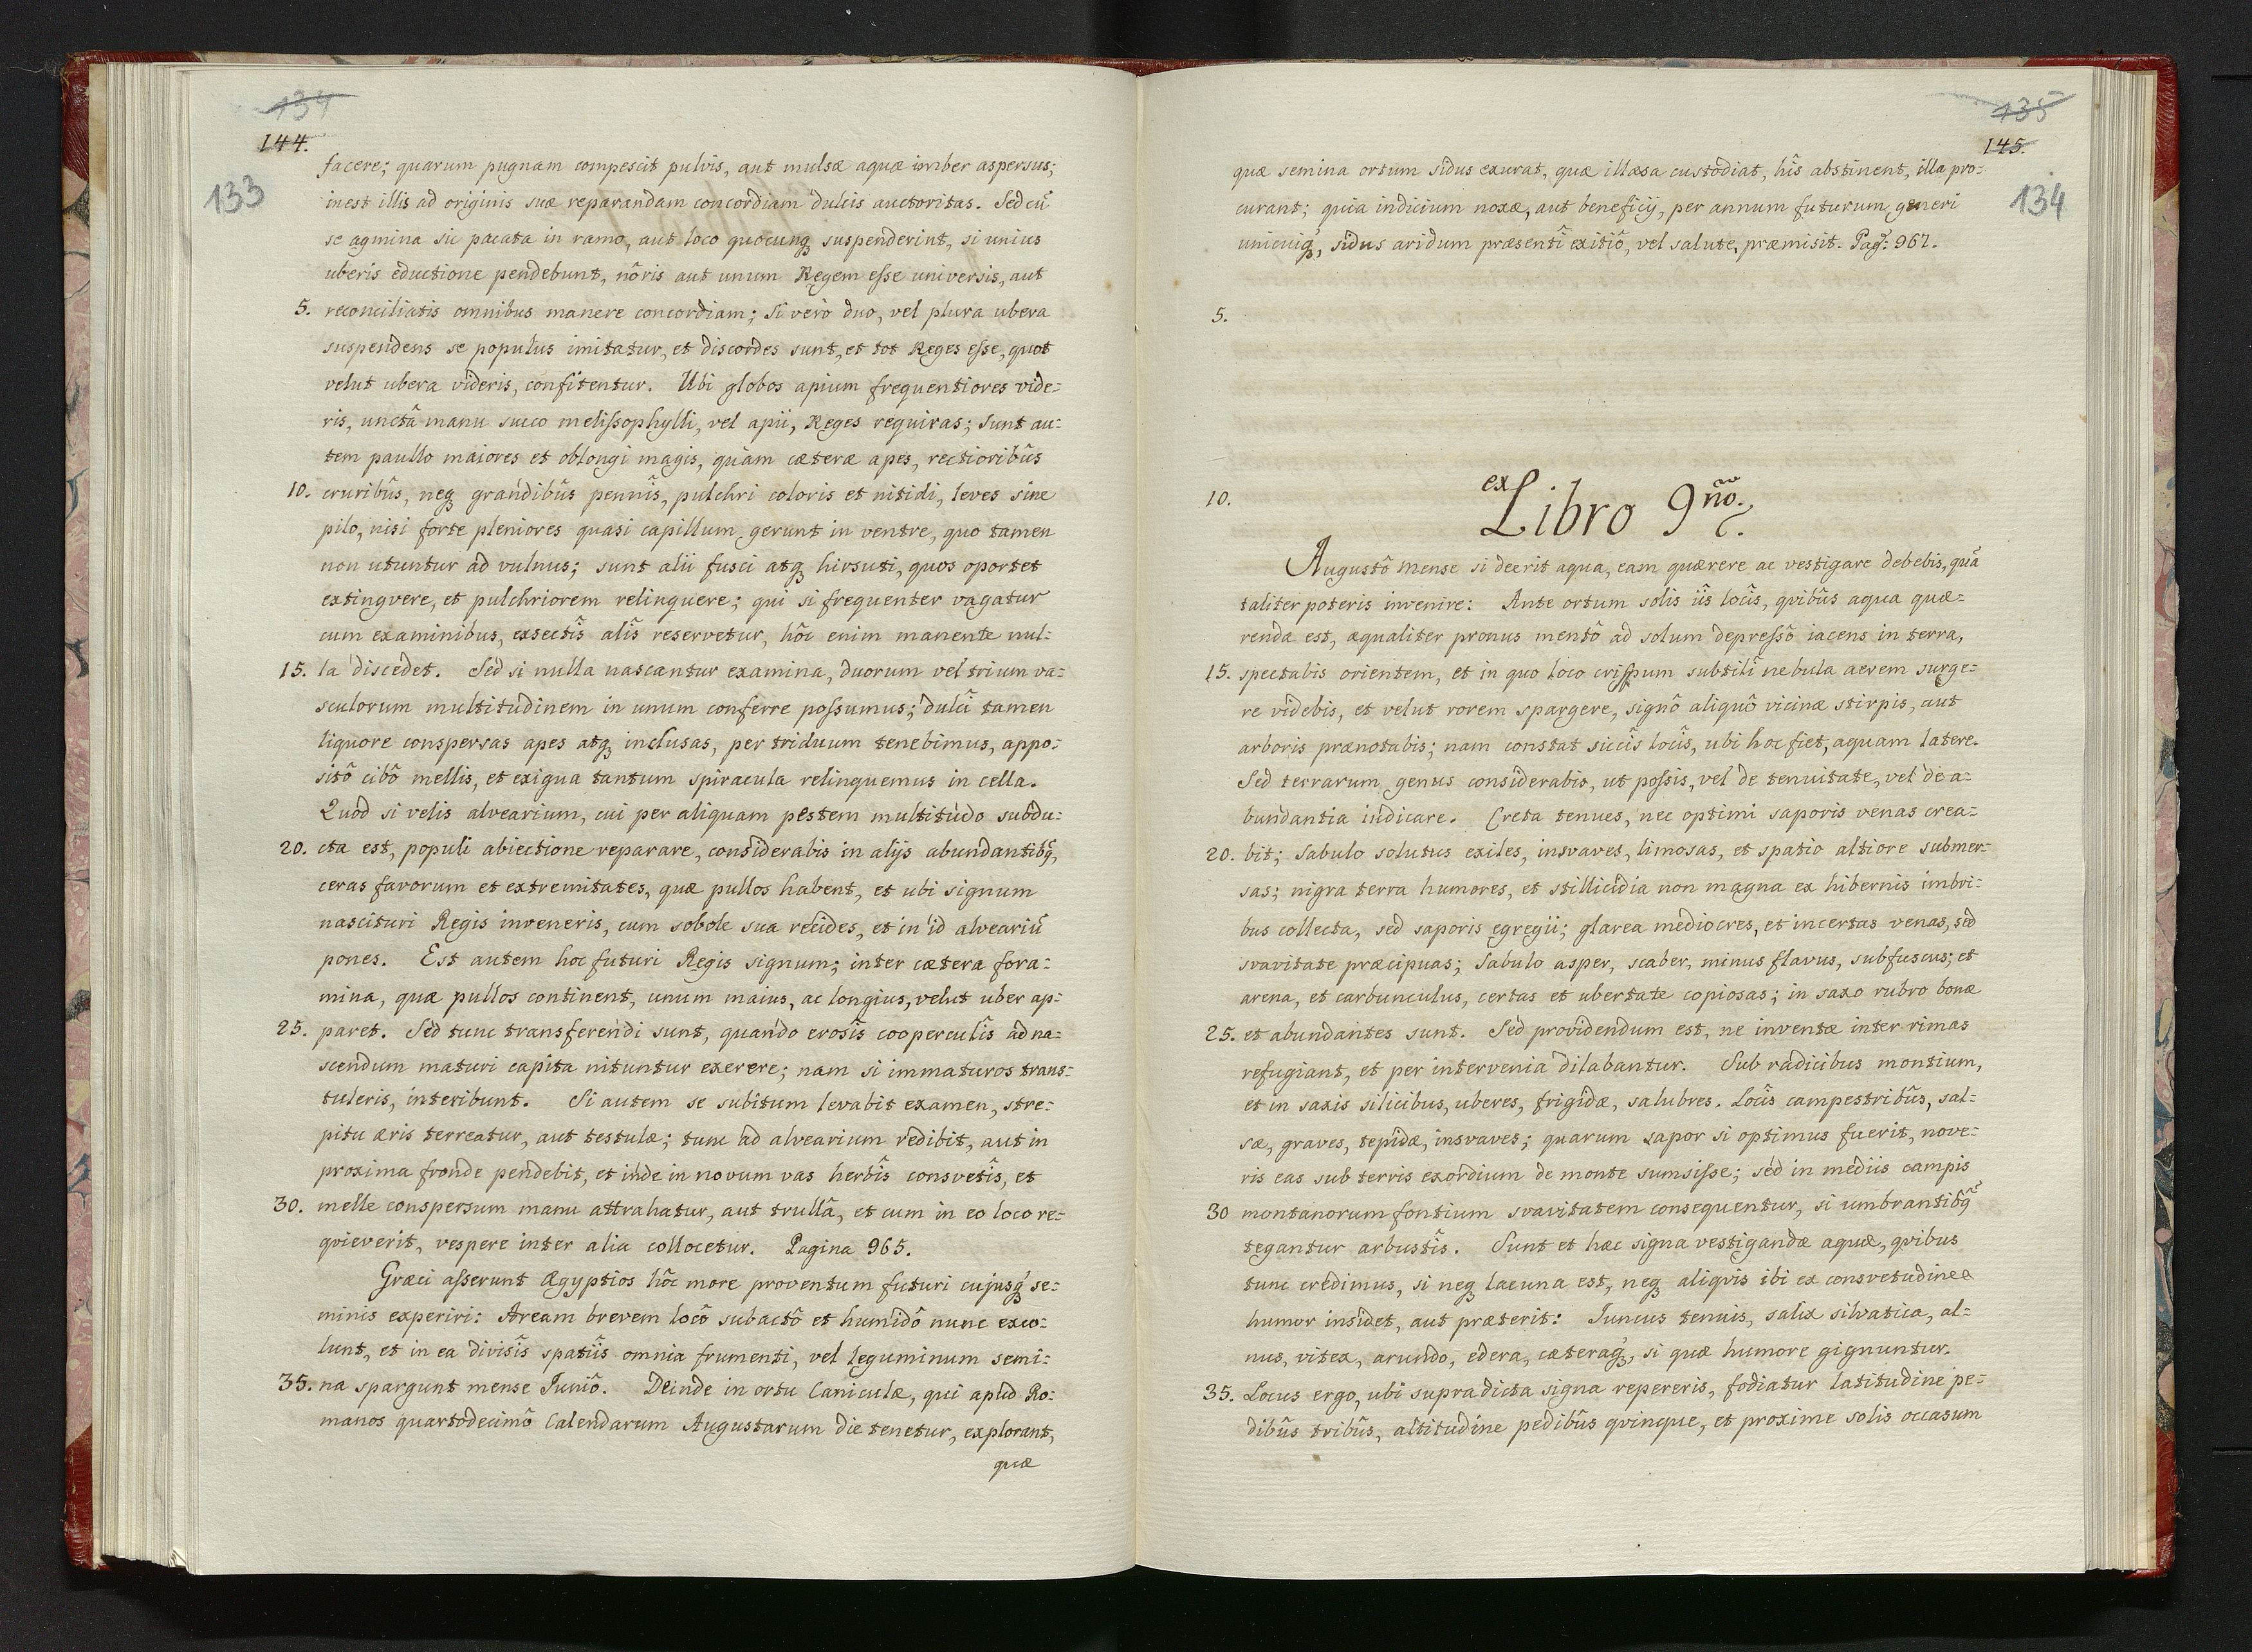 134
144.
133
facere; quarum pugnam compescit pulvis, aut mulsæ aquæ imber aspersus;
inest illis ad originis suæ reparandam concordiam dulcis auctoritas. Sed cũ
se agmina sic pacata in ramo, aut loco quocunqꝫ suspenderint, si unius
uberis eductione pendebunt, nôris aut unum Regem eſse universis, aut
5. reconciliatis omnibus manere concordiam; Si verò duo, vel plura ubera
suspendens se populus imitatur, et discordes sunt, et tot Reges eſse, quot
velut ubera videris, confitentur. Ubi globos apium frequentiores vide=
ris, unctâ manu succo meliſsophylli, vel apii, Reges requiras; sunt au=
tem paullo maiores et oblongi magis, quàm cæteræ apes, rectioribûs
10. cruribûs, neqꝫ grandibûs pennîs, pulchri coloris et nitidi, leves sine
pilo, nisi forte pleniores quasi capillum gerunt in ventre, quo tamen
non utuntur ad vulnus; sunt alii fusci atqꝫ hirsuti, quos oportet
extingvere, et pulchriorem relinquere; qui si frequenter vagatur
cum examinibus, exsectîs alîs reservetur, hôc enim manente nul=
15. la discedet. Sed si nulla nascantur examina, duorum vel trium va=
sculorum multitudinem in unum conferre poſsumus; dulci tamen
liquore conspersas apes atqꝫ inclusas, per triduum tenebimus, appo=
sitô cibô mellis, et exigua tantum spiracula relinquemus in cella.
Quod si velis alvearium, cui per aliquam pestem multitudo subdu=
20. cta est, populi abiectione reparare, considerabis in alijs abundantibꝗ,
ceras favorum et extremitates, quæ pullos habent, et ubi signum
nascituri Regis inveneris, cum sobole sua recides, et in id alveariũ
pones. Est autem hoc futuri Regis signum; inter cætera fora=
mina, quæ pullos continent, unum maius, ac longius, velut uber ap=
25. paret. Sed tunc transferendi sunt, quando erosîs cooperculîs ad na=
scendum maturi capita nituntur exerere; nam si immaturos trans=
tuleris, interibunt. Si autem se subitum levabit examen, stre=
pitu æris terreatur, aut testulæ; tunc ad alvearium redibit, aut in
proxima fronde pendebit, et inde in novum vas herbîs consvetîs, et
30. melle conspersum manu attrahatur, aut trullâ, et cum in eo loco re=
qvieverit, vespere inter alia collocetur. Pagina 965.
Græci aſserunt Ægyptios hôc more proventum futuri cujusqꝫ se=
minis experiri: Aream brevem locô subactô et humidô nunc exco=
lunt, et in ea divisîs spatiîs omnia frumenti, vel leguminum semi=
35. na spargunt mense Juniô. Deinde in ortu Caniculæ, qui apud Ro=
manos quartodecimô Calendarum Augustarum die tenetur, explorant,
quæ
135
145.
134
quæ semina ortum sidus exurat, quæ illæsa custodiat, hîs abstinent, illa pro=
curant; quia indicium noxæ, aut beneficij, per annum futurum generi
unicuiqꝫ, sidus aridum præsentî exitiô, vel salute, præmisit. Pag: 967.
5.
10.
ex Libro 9no.
Augustô Mense si deerit aqua, eam quærere ac vestigare debebis, quã
taliter poteris invenire: Ante ortum solis iîs locîs, qvibûs aqua quæ=
renda est, æqualiter pronus mentô ad solum depreſsô iacens in terra,
15. spectabis orientem, et in quo loco crispum subtilî nebula aerem surge=
re videbis, et velut rorem spargere, signô aliquô vicinæ stirpis, aut
arboris prænotabis; nam constat siccîs locîs, ubi hoc fiet, aquam latere.
Sed terrarum genus considerabis, ut poſsis, vel de tenuitate, vel de a=
bundantia indicare. Creta tenues, nec optimi saporis venas crea=
20. bit; Sabulo solutus exiles, insvaves, limosas, et spatio altiore submer=
sas; nigra terra humores, et stillicidia non magna ex hibernis imbri=
bus collecta, sed saporis egregii; glarea mediocres, et incertas venas, sed
svavitate præcipuas; Sabulo asper, scaber, minus flavus, subfuscus; et
arena, et carbunculus, certas et ubertate copiosas; in saxo rubro bonæ
25. et abundantes sunt. Sed providendum est, ne inventæ inter rimas
refugiant, et per intervenia dilabantur. Sub radicibus montium,
et in saxis silicibus, uberes, frigidæ, salubres. Locîs campestribûs, sal=
sæ, graves, tepidæ, insvaves; quarum sapor si optimus fuerit, nove=
ris eas sub terris exordium de monte sumsiſse; sed in mediis campis
30 montanorum fontium svavitatem consequentur, si umbrantibꝗ
tegantur arbustîs. Sunt et hæc signa vestigandæ aquæ, qvibus
tunc credimus, si neqꝫ lacuna est, neqꝫ aliqvis ibi ex consvetudine
humor insidet, aut præterit: Juncus tenuis, salix silvatica, al=
nus, vitex, arundo, edera, cæteraqꝫ, si quæ humore gignuntur.
35. Locus ergo, ubi supradicta signa repereris, fodiatur latitudine pe=
dibûs tribûs, altitudine pedibûs qvinque, et proxime solis occasum